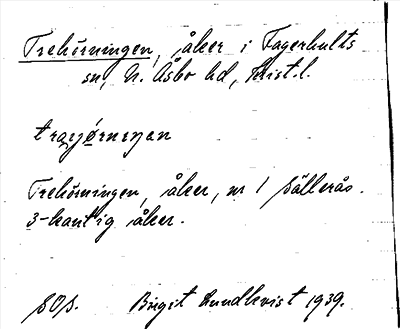 Trehörningen, åker i Fagerhults
sn, N. Åsbo hd, Krist.l.
Trehörningen, åker, nr 1 Sällerås.
3-kantig åker.
SOS. Birgit Lundkvist 1939.